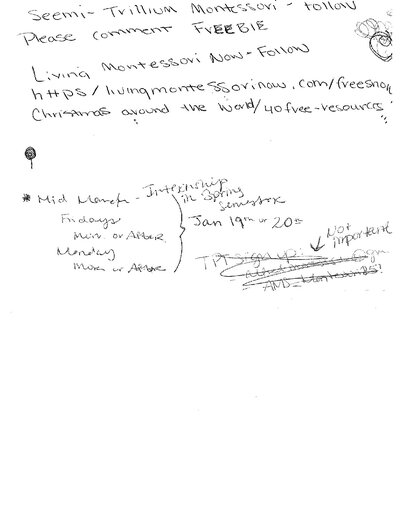 Seemi - Trillium Montessori - follow
Please comment FREEBIE
Living Montessori Now - Follow
https/livingmontessorinow.com/freesno
Christmas around the World/40free-resources
* Mid March - Internship
in Spring
semester
Fridays
Mor. or After.
Monday
Mor. or After.
Jan 19th or 20th
Not
important
TPT
AMS - Montessori